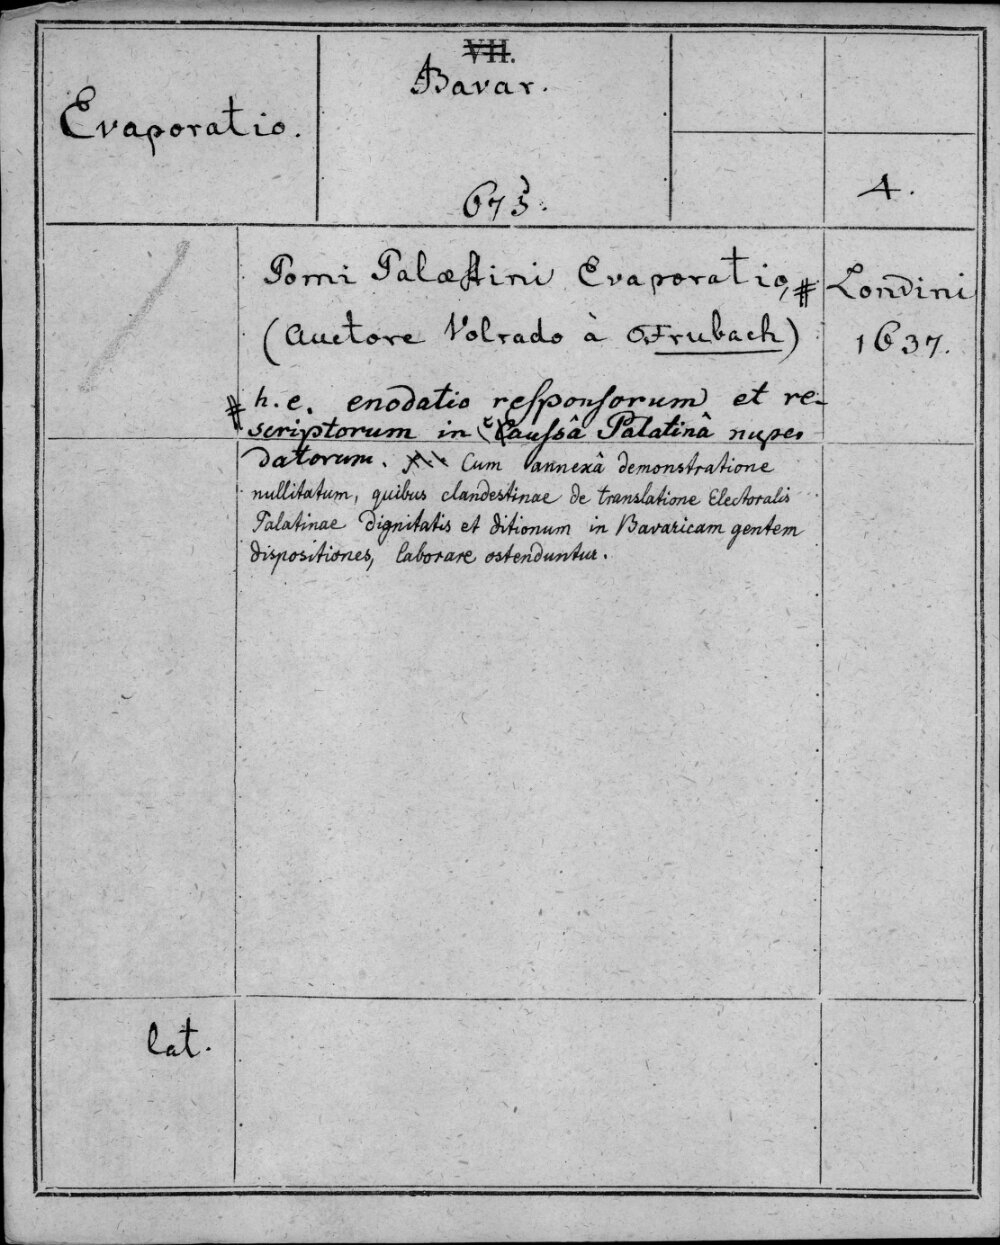 VII.
Bavar.
Evaporatio.
675.
4.
Pomi Palæstini Evaporatio, #
(Auctore Volrado à Frubach)
Londini
1637.
# h. e. enodatio responsorum et re-
scriptorum in Caussâ Palatinâ nuper
datorum. Cum annexâ demonstratione
nullitatum, quibus clandestinae de translatione Electoralis
Palatinae dignitatis et ditionum in Bavaricam gentem
dispositiones, laborare ostenduntur.
lat.